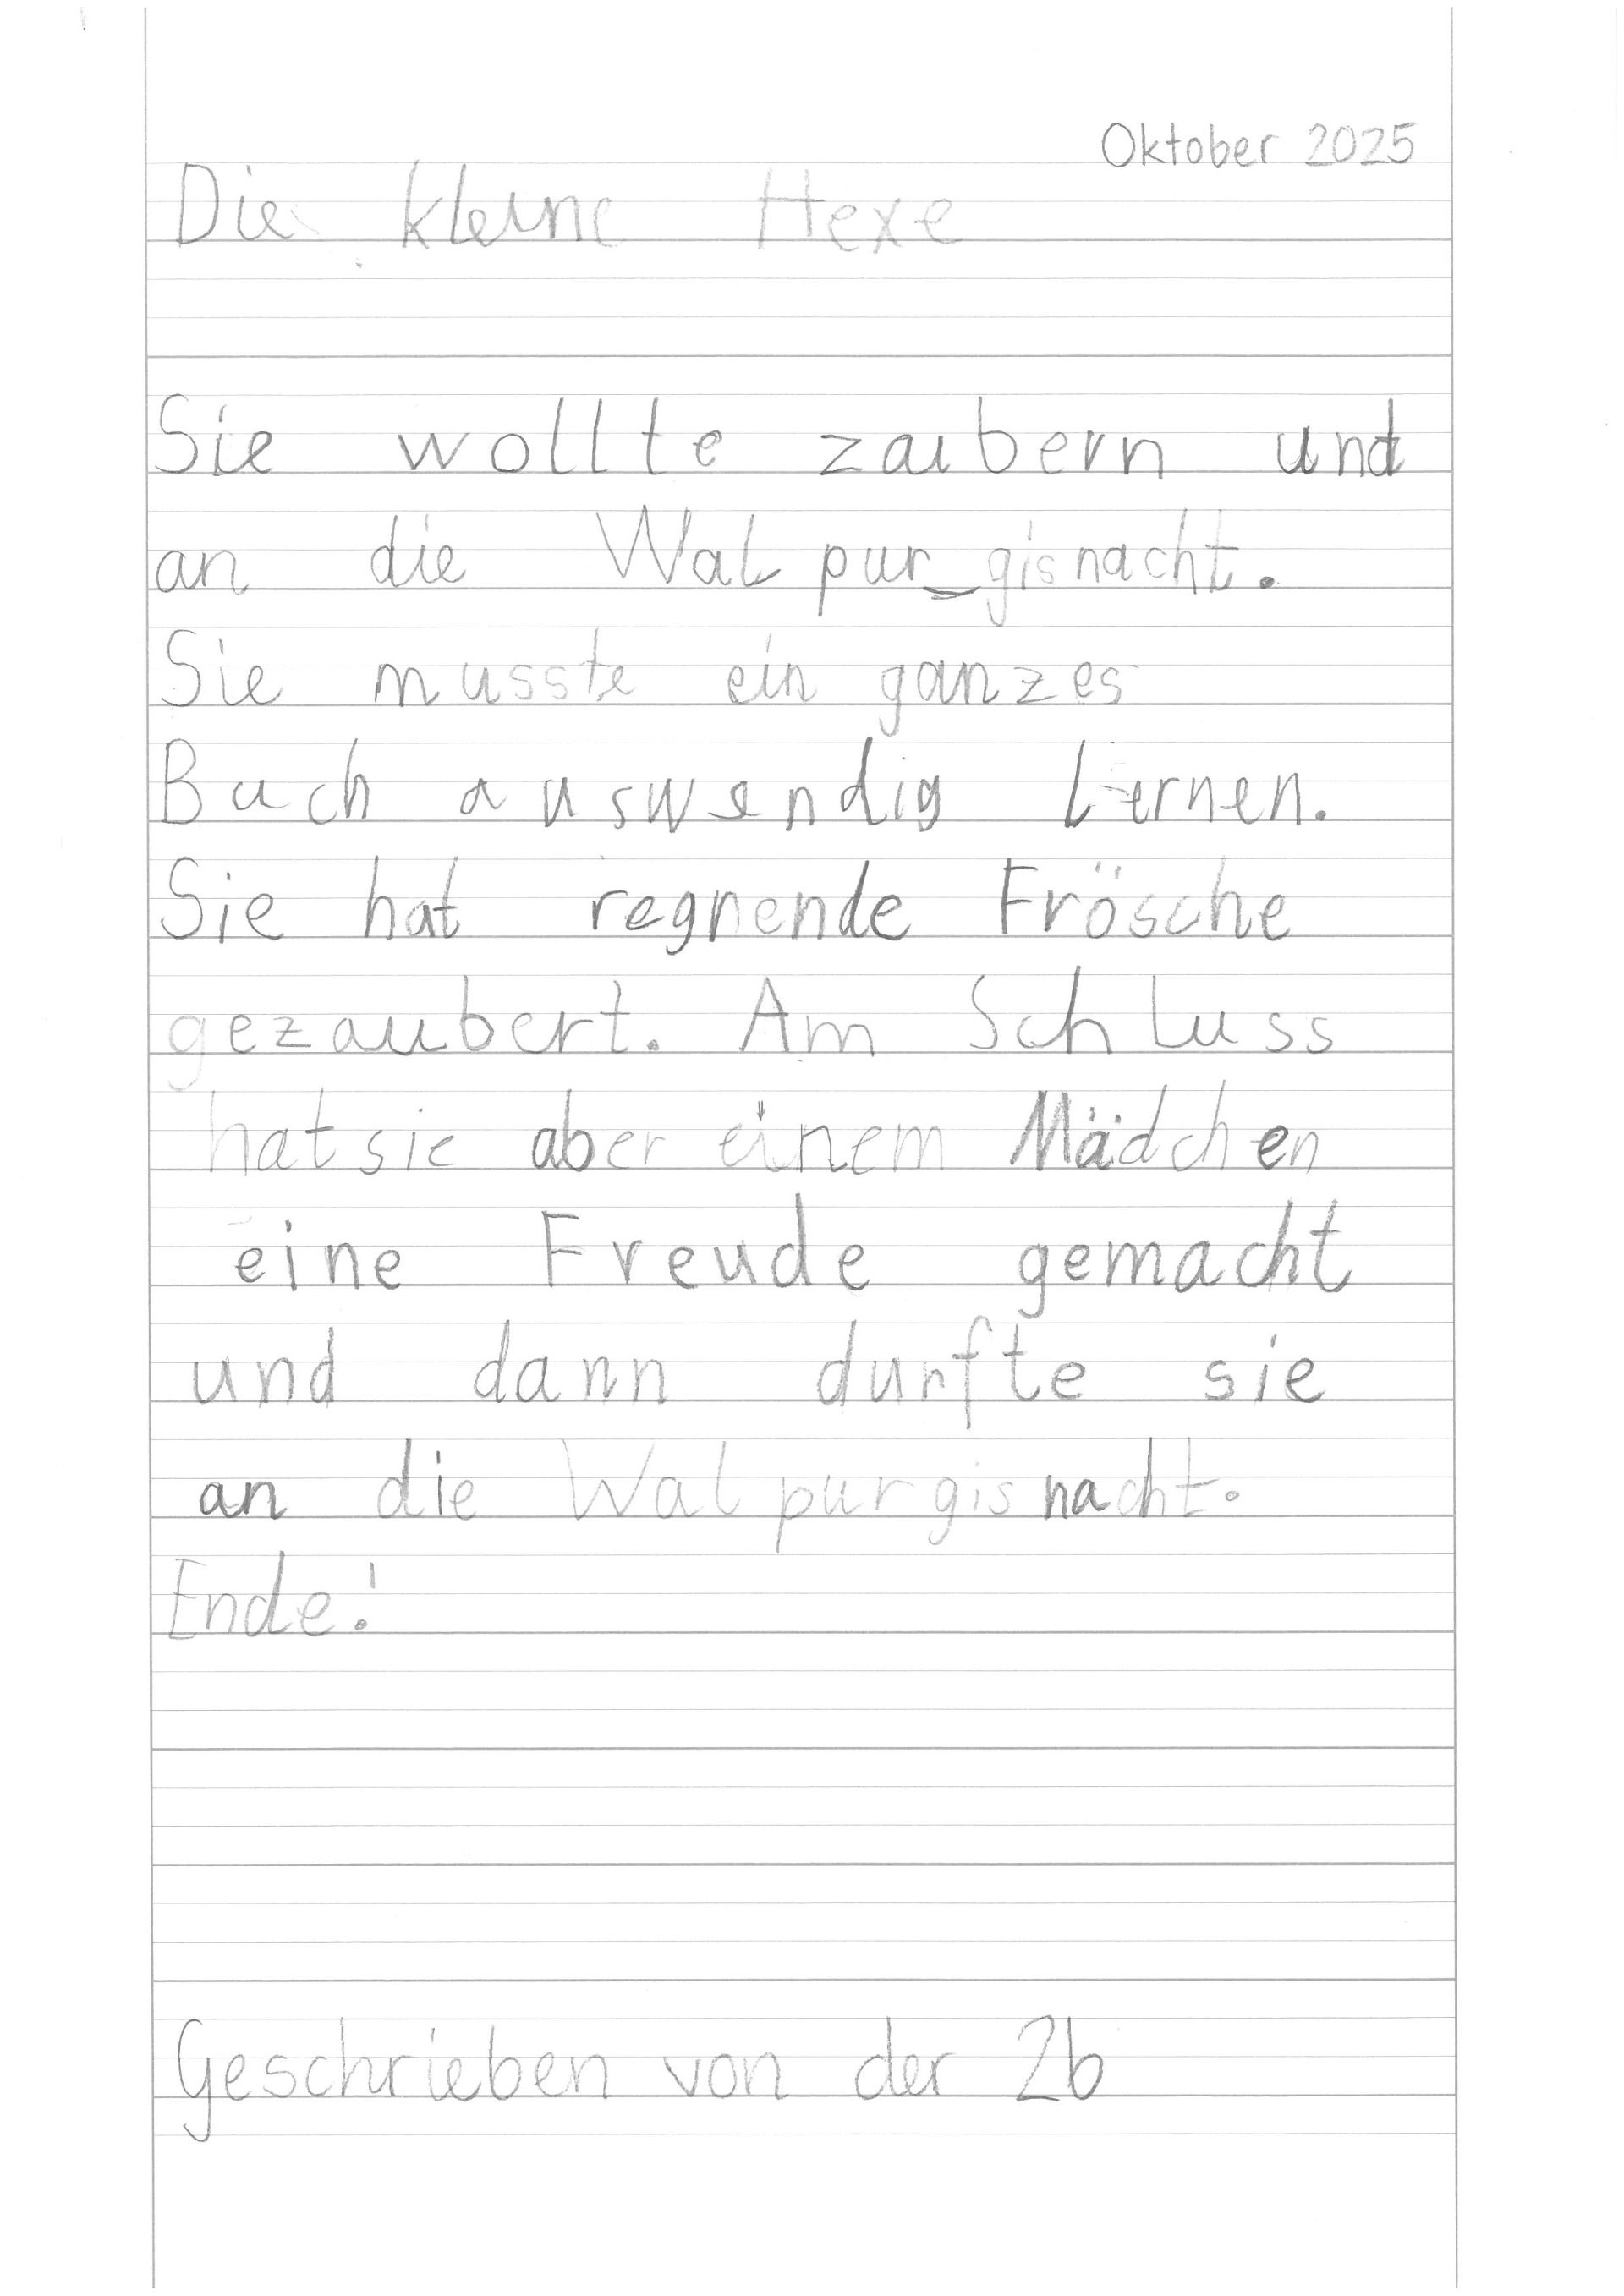 Oktober 2025
Die kleine Hexe
Sie wollte zaubern und
an die Walpurgisnacht.
Sie musste ein ganzes
Buch auswendig lernen.
Sie hat regnende Frösche
gezaubert. Am Schluss
hat sie aber einem Mädchen
eine Freude gemacht
und dann durfte sie
an die Walpurgisnacht.
Ende!
Geschrieben von der 2b